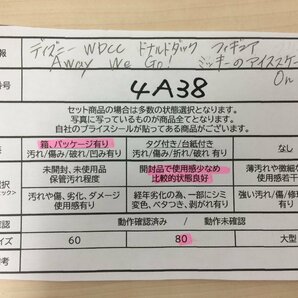 報 ディズニー WDCC ドナルドダック フィギュア
Away We Go! ミッキーのアイススケー
On
番号 4A38
セット商品の場合は多数の状態選択となります。
写真に写っているものが全てとなります。
自社のプライスシールが貼ってある商品がございます。
箱、パッケージ有り タグ付き/台紙付き なし
汚れ/傷み/破れ/凹み有り 汚れ/傷み/折れ/破れ 有り
未開封、未使用品 開封品で使用感少なめ 薄汚れや微細な
選択 保管汚れ程度 比較的状態良好 使用感若干
ェック> 汚れや傷、劣化、ダメージ 経年劣化の為、一部にシミ 強い汚れ/傷/修
使用感有り 変色、ベタつき、剥がれ有り 有り
確認 動作確認済み / 動作未確認
イズ 60 80 大型
備考